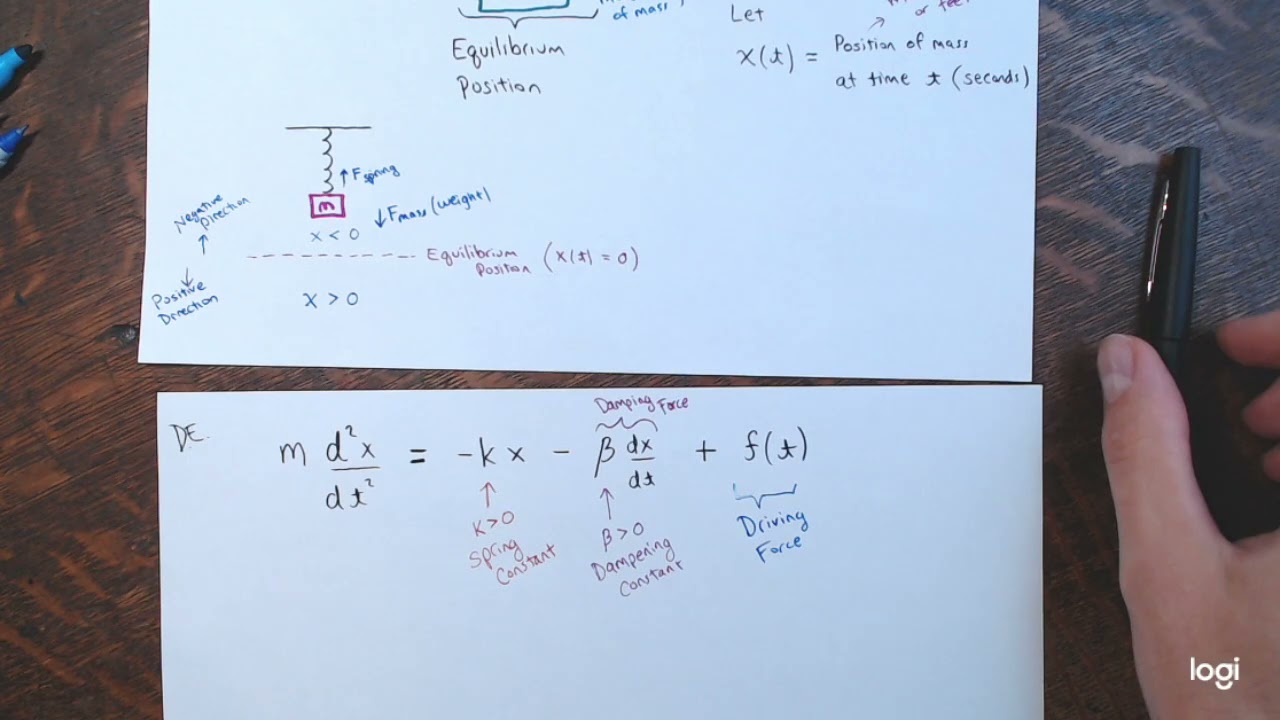 of mass
Equilibrium
Position
Let
or feet
x(t) = Position of mass
at time t (seconds)
↑ Fspring
m
↓ Fmass (weight)
Negative
Direction
x < 0
Equilibrium
Position (x(t) = 0)
Positive
Direction
x > 0
Damping Force
DE.
m d²x/dt² = -kx - β dx/dt + f(t)
k>0
Spring
Constant
β>0
Dampening
Constant
Driving
Force
logi